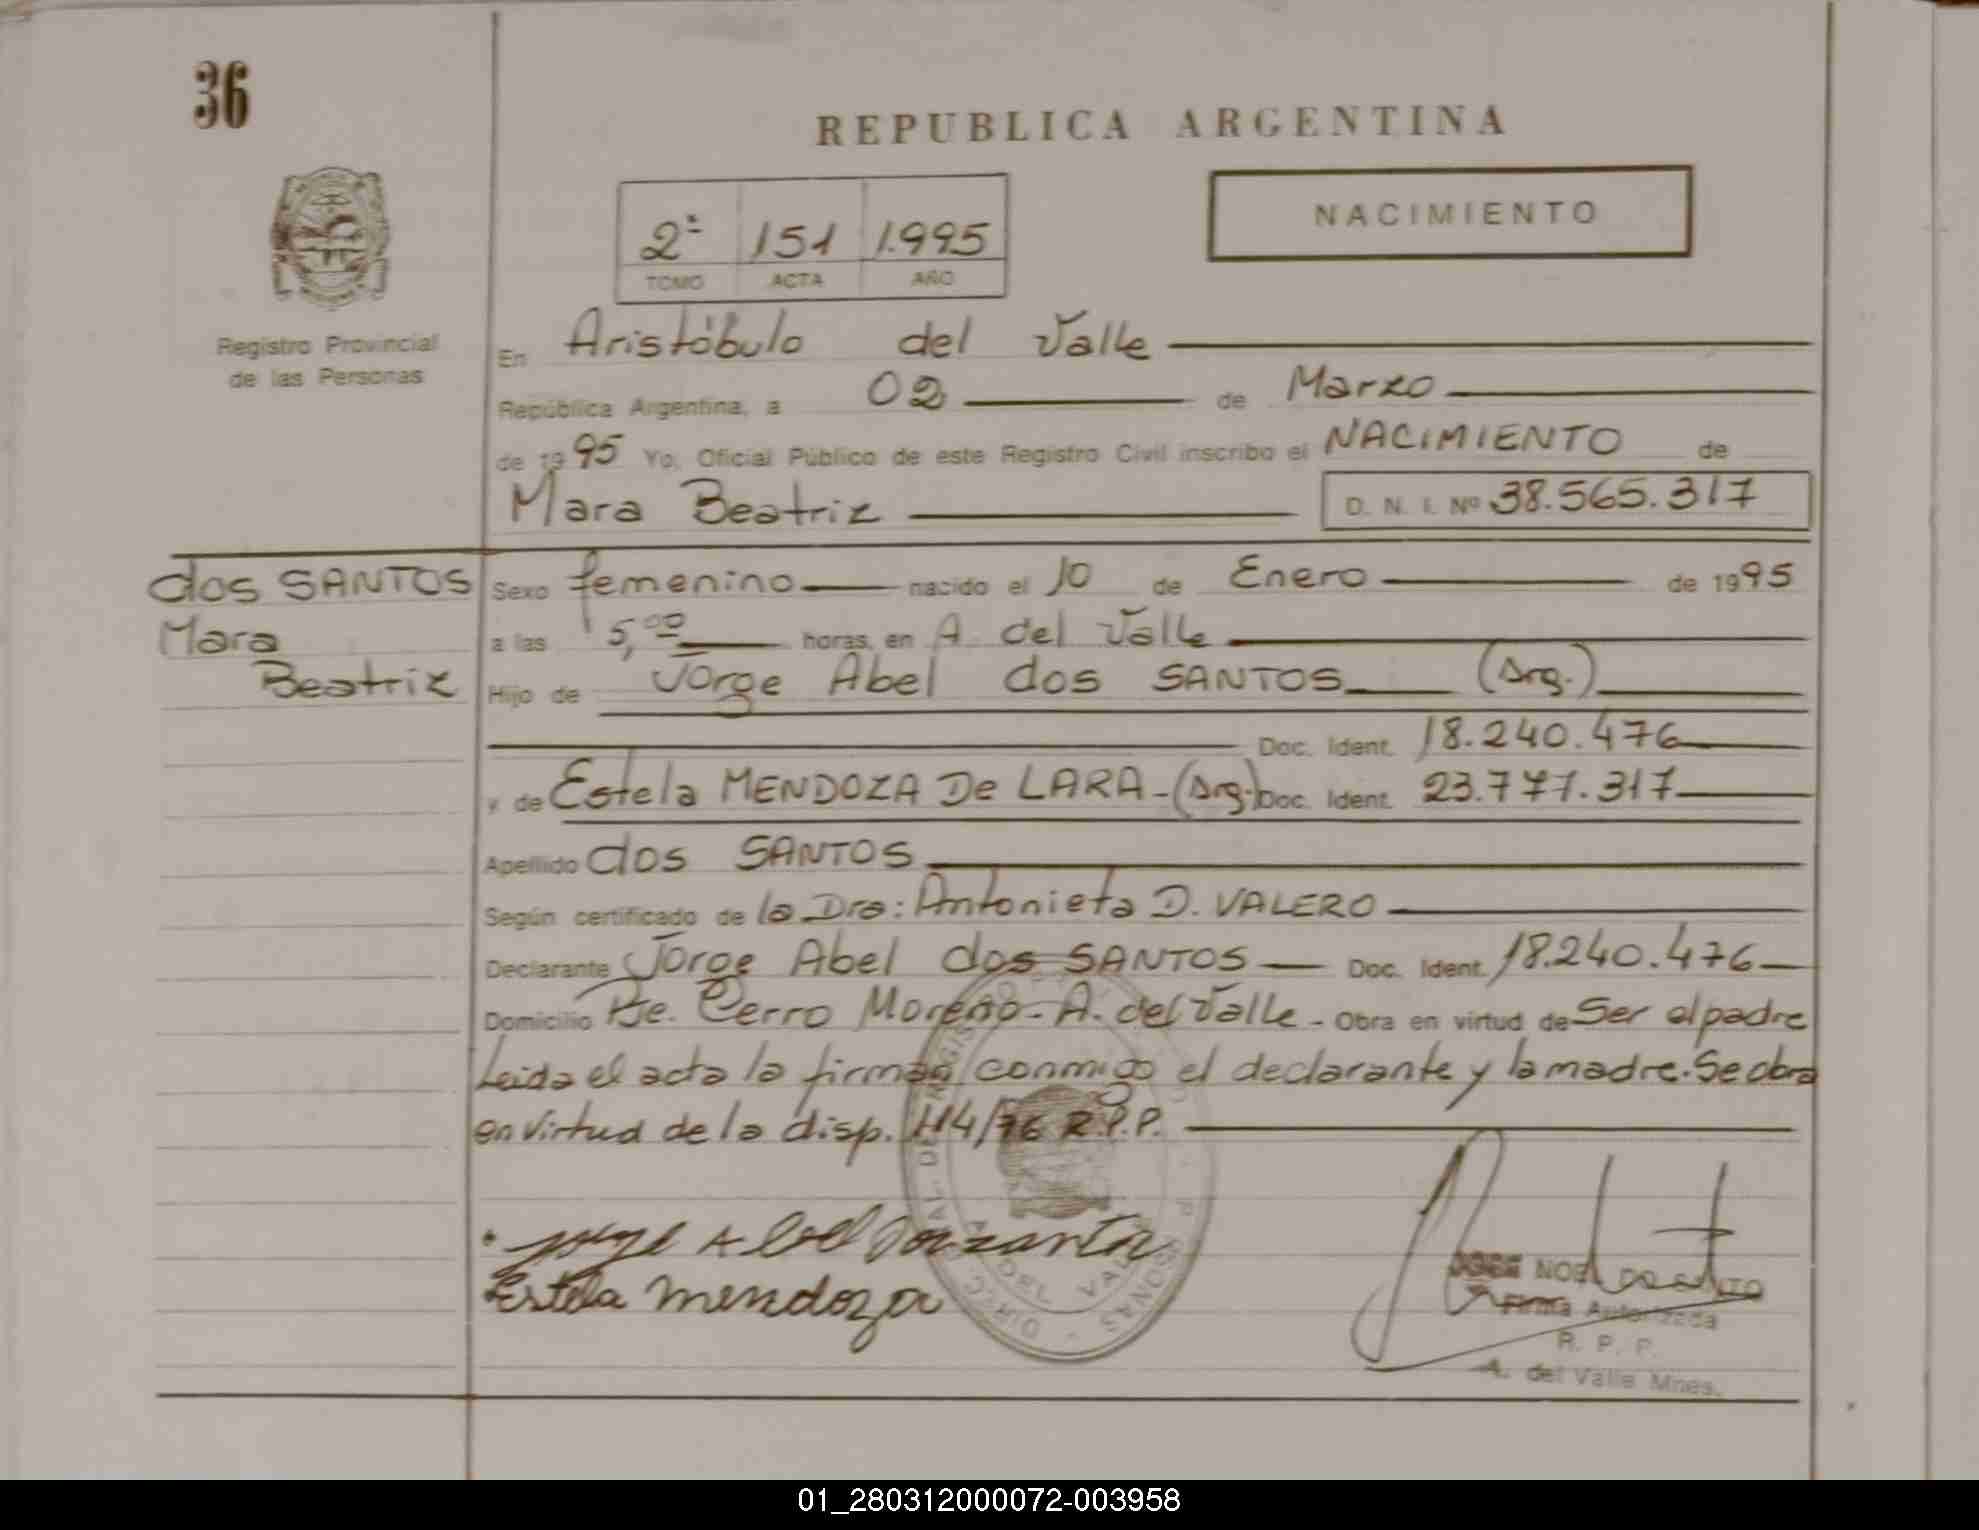 36
REPUBLICA ARGENTINA
NACIMIENTO
2º 151 1.995
TOMO ACTA AÑO
Registro Provincial
de las Personas
En Aristóbulo del Valle
República Argentina, a 02 de Marzo
de 1995 Yo, Oficial Público de este Registro Civil inscribo el NACIMIENTO de
Mara Beatriz D. N. I. Nº 38.565.317
dos SANTOS
Mara
Beatriz
Sexo femenino nacido el 10 de Enero de 1995
a las 5,00 horas, en A. del Valle
Hijo de Jorge Abel dos SANTOS (Arg.)
Doc. Ident. 18.240.476
y de Estela MENDOZA De LARA - (Arg.) Doc. Ident. 23.777.317
Apellido dos SANTOS
Según certificado de la Dra: Antonieta D. VALERO
Declarante Jorge Abel dos SANTOS Doc. Ident. 18.240.476
Domicilio Pje. Cerro Moreno - A. del Valle - Obra en virtud de Ser el padre
Leida el acta la firman conmigo el declarante y la madre. Se obra
en virtud de la disp. 114/76 R.P.P.
Estela mendoza
Firma Autorizada
R. P. P.
A. del Valle Mnes.
01_280312000072-003958